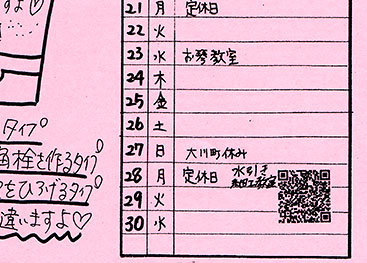 すよ♡
タイプ
角栓を作るタイプ
をひろげるタイプ
違いますよ♡
21 月 定休日
22 火
23 水 お琴教室
24 木
25 金
26 土
27 日 大川町休み
28 月 定休日 水引き
細工教室
29 火
30 水